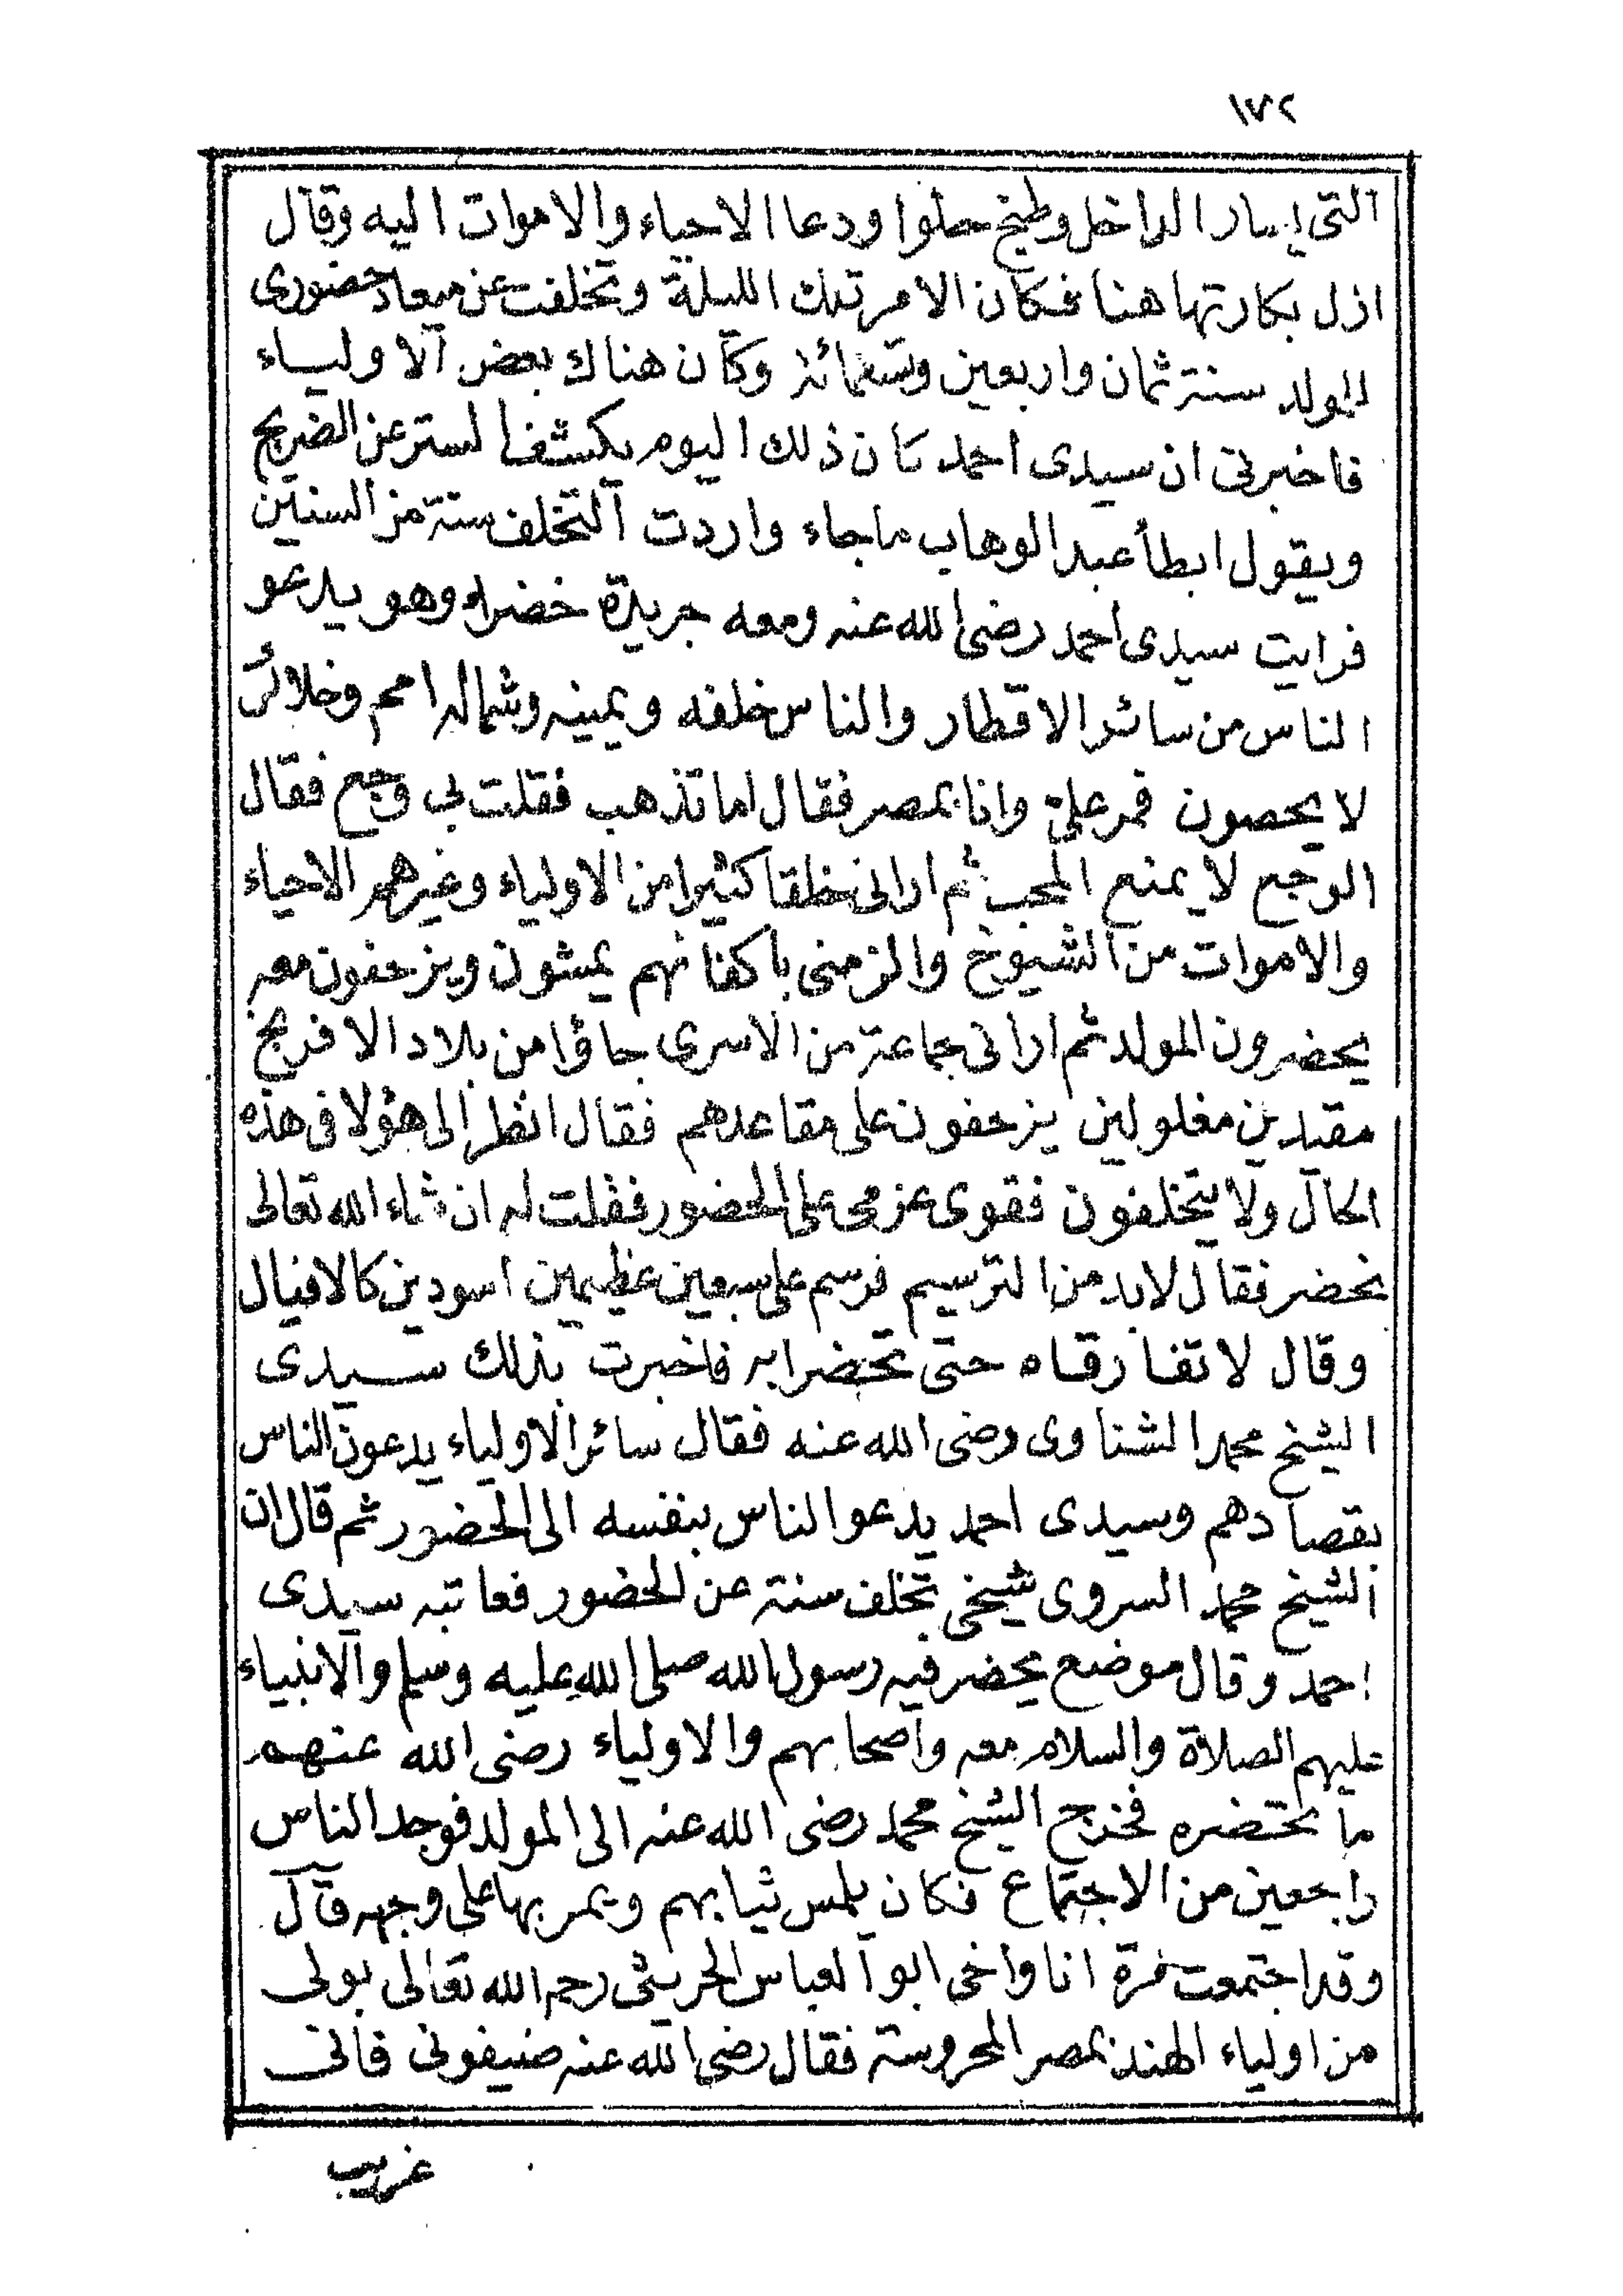 ١٧٢
التى يسار الداخل وطبخ حلوا ودعا الاحياء والاموات اليه وقال
ازل بكارتها هنا فكان الامر تلك الليلة وتخلفت عن ميعاد حضورى
للمولد سنة ثمان واربعين وتسعمائة وكان هناك بعض الاولياء
فاخبرنى ان سيدى احمد كان ذلك اليوم يكشف الستر عن الضريح
ويقول ابطأ عبد الوهاب ما جاء واردت التخلف سنة من السنين
فرايت سيدى احمد رضى الله عنه ومعه جريدة خضراء وهو يدعو
الناس من سائر الاقطار والناس خلفه ويمينه وشماله امم وخلائق
لا يحصون فمر على وانا بمصر فقال اما تذهب فقلت بى وجع فقال
الوجع لا يمنع المحب ثم ارانى خلقا كثيرا من الاولياء وغيرهم الاحياء
والاموات من الشيوخ والزمنى باكفانهم يمشون ويزحفون معه
يحضرون المولد ثم ارانى جماعة من الاسرى جاؤا من بلاد الافرنج
مقيدين مغلولين يزحفون على مقاعدهم فقال انظر الى هؤلا فى هذه
الحال ولا يتخلفون فقوى عزمى على الحضور فقلت له ان شاء الله تعالى
نحضر فقال لابد من الترسيم فرسم على سبعين عظيمين اسودين كالافيال
وقال لا تفارقاه حتى تحضرا به فاخبرت بذلك سيدى
الشيخ محمد الشناوى رضى الله عنه فقال سائر الاولياء يدعون الناس
بقصادهم وسيدى احمد يدعو الناس بنفسه الى الحضور ثم قال ان
الشيخ محمد السروى شيخى تخلف سنة عن الحضور فعاتبه سيدى
احمد وقال موضع يحضر فيه رسول الله صلى الله عليه وسلم والانبياء
عليهم الصلاة والسلام معه واصحابهم والاولياء رضى الله عنهم
ما تحضره فخرج الشيخ محمد رضى الله عنه الى المولد فوجد الناس
راجعين من الاجتماع فكان يلمس ثيابهم ويمر بها على وجهه قال
وقد اجتمعت مرة انا واخى ابو العباس الحريثى رحمه الله تعالى بولى
من اولياء الهند بمصر المحروسة فقال رضى الله عنه ضيفونى فانى
غريب